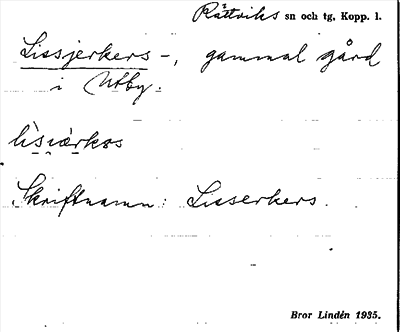 Rättviks sn och tg, Kopp. l.
Lissjerkers -, gammal gård
i Utby.
lìsıærkos
Skriftnamn: Lisserkers.
Bror Lindén 1935.